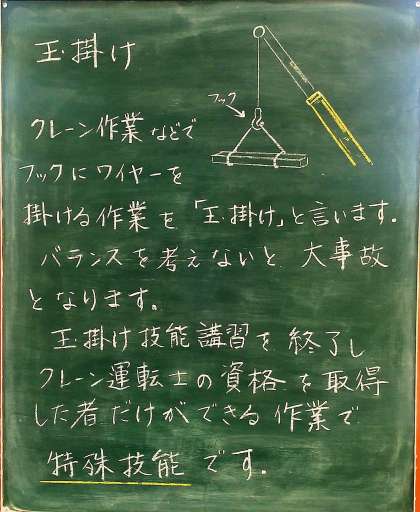 玉掛け
フック
クレーン作業などで
フックにワイヤーを
掛ける作業を「玉掛け」と言います。
バランスを考えないと大事故
となります。
玉掛け技能講習を終了し
クレーン運転士の資格を取得
した者だけができる作業で
特殊技能です。